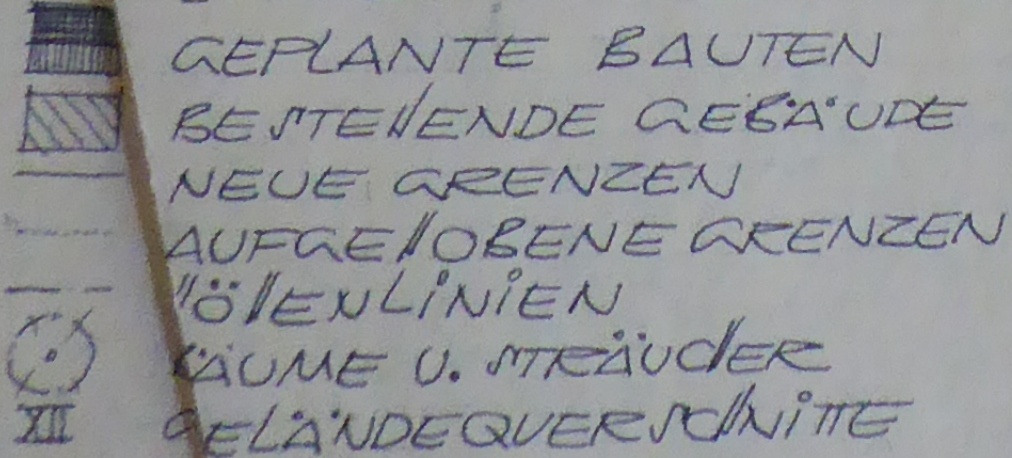 GEPLANTE BAUTEN
BESTEHENDE GEBÄUDE
NEUE GRENZEN
AUFGEHOBENE GRENZEN
HÖHENLINIEN
BÄUME U. STRÄUCHER
XII GELÄNDEQUERSCHNITTE